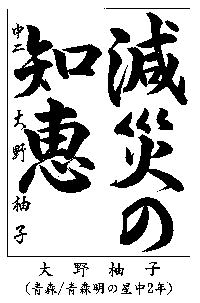 減災の
知恵
中二 大野柚子
大野柚子
(青森/青森明の星中2年)